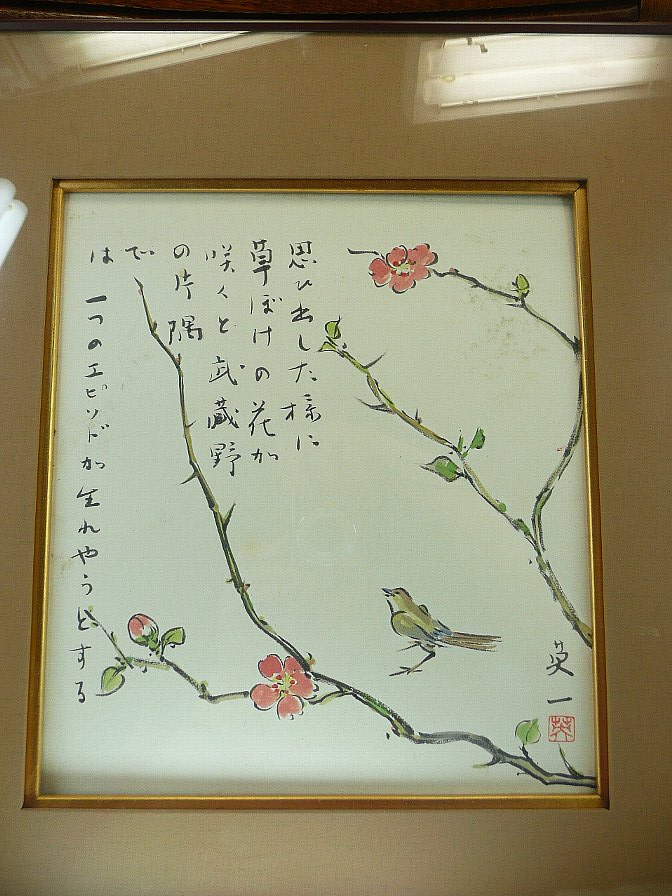 思ひ出した様に
草ぼけの花が
咲くと武蔵野
の片隅
で
は一つのエピソドが生れやうとする
英一
英